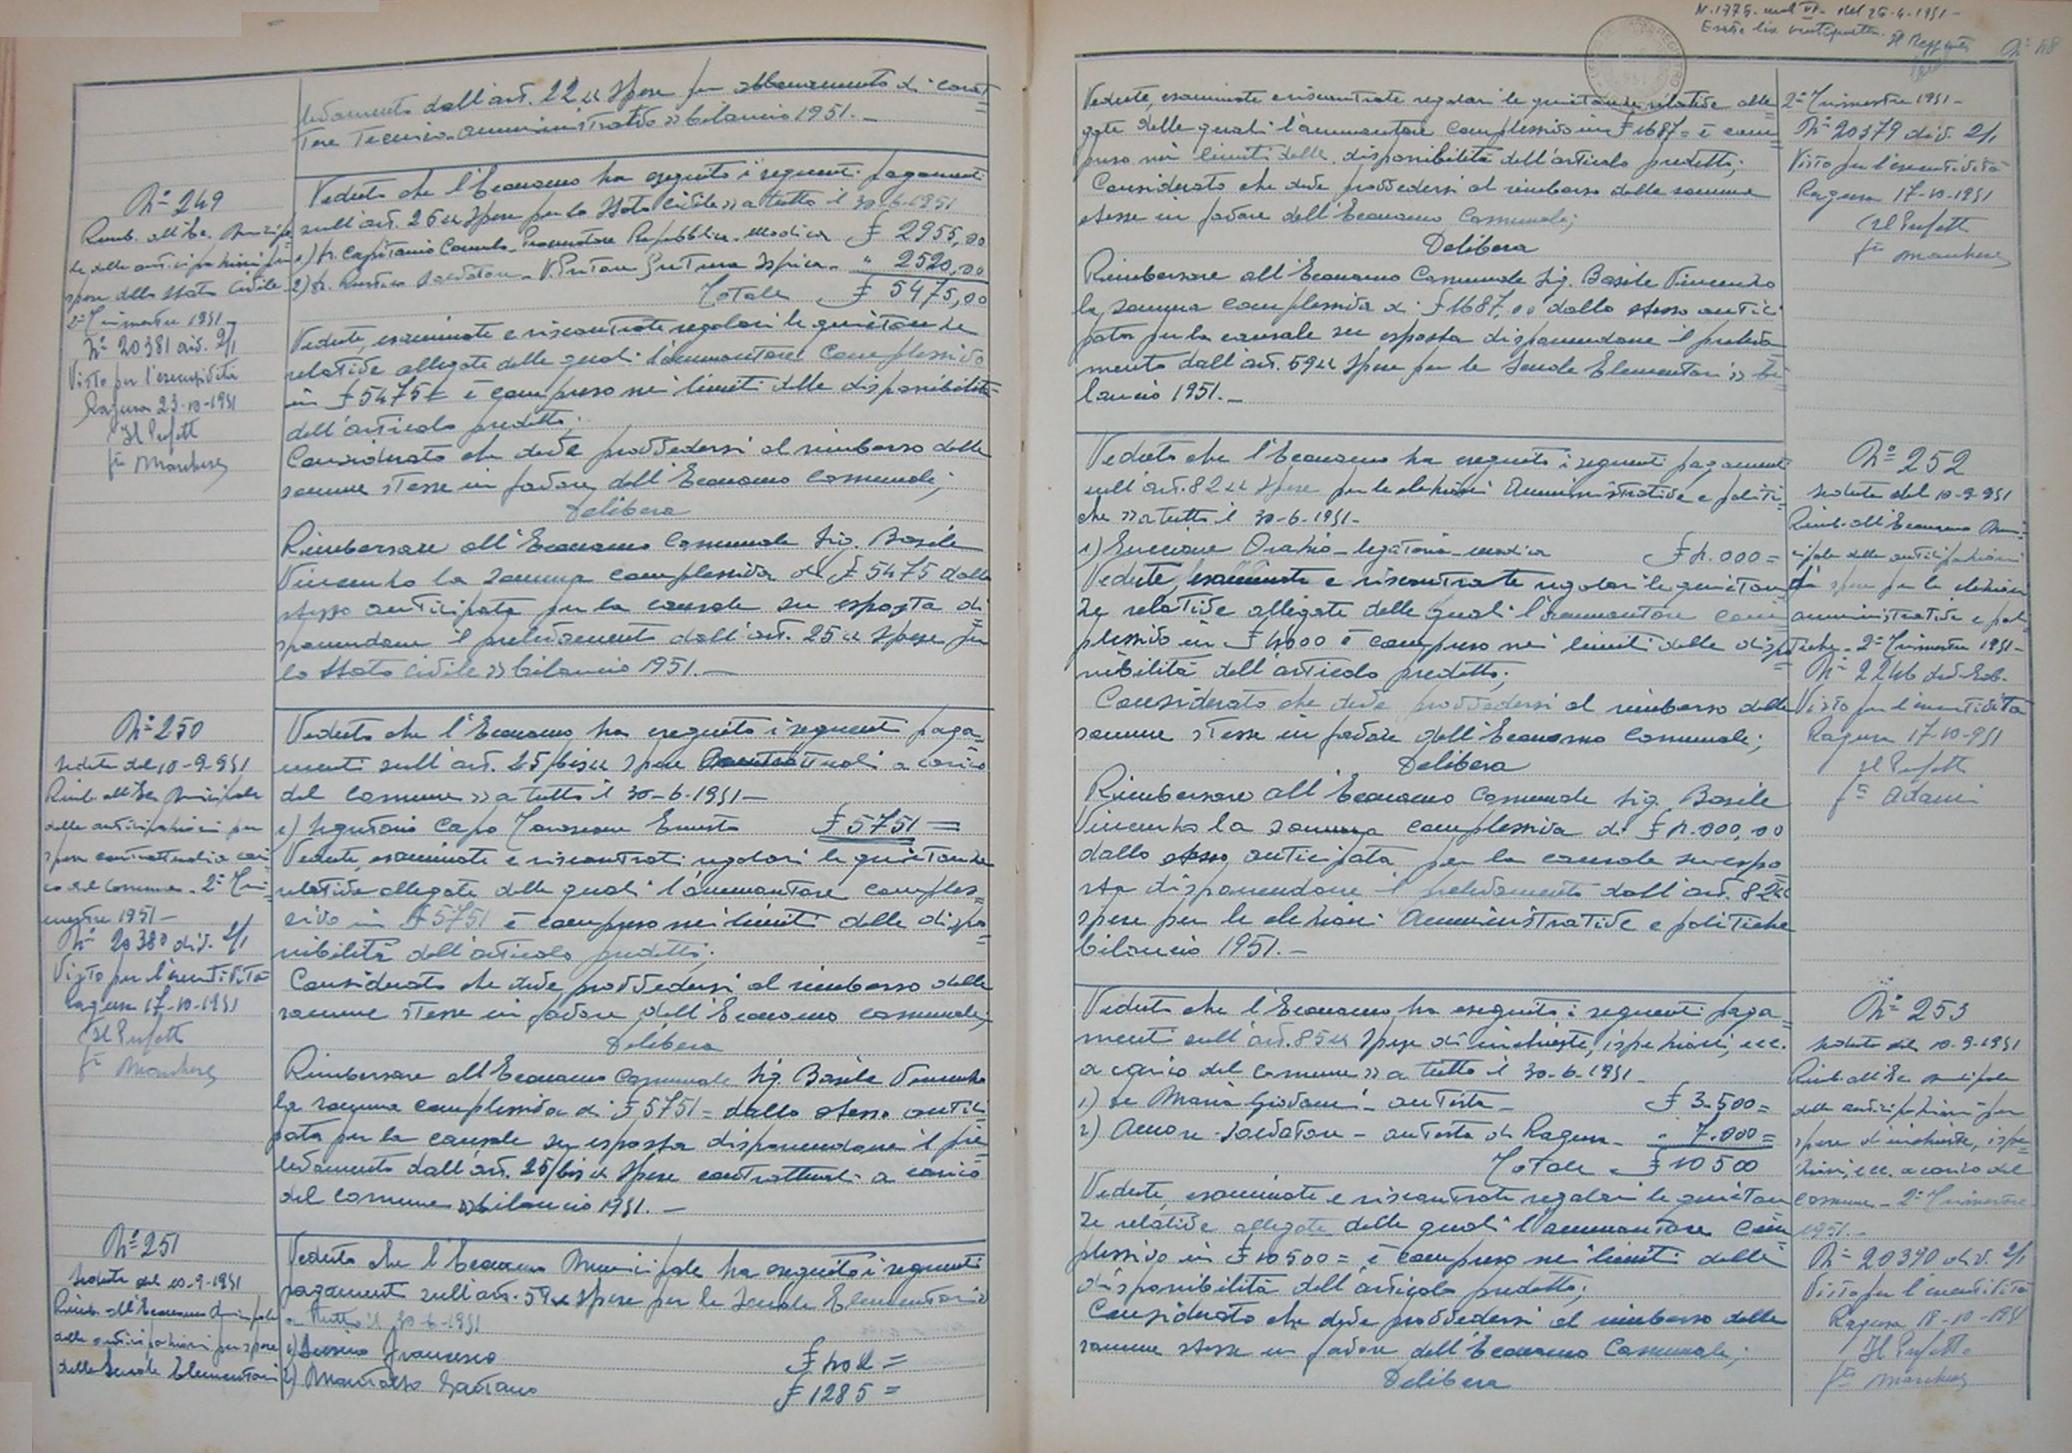 levamento dall'art. 22 « Spese per abbonamento di carat=
tere Tecnico-amministrativo » bilancio 1951.—
N° 249
Rimb. all'Ec. Municipa
le delle anticipazioni per
spese dello Stato Civile
2° Trimestre 1951
N° 20381 div. 2/1
Visto per l'esecutività
Ragusa 23-10-1951
Il Prefetto
f.to Marchese
Veduto che l'Economo ha eseguito i seguenti pagamenti
sull'art. 26 « Spese per lo Stato Civile » a tutto il 30-6-1951
1) Sr. Capitanio Carmelo - Procuratore Repubblica - Modica £ 2955,00
2) Sr. Rustico Salvatore - V. Pretore Pretura Ispica - " 2520,00
Totale £ 5475,00
Vedute, esaminate e riscontrate regolari le quietanze
relative allegate delle quali l'ammontare complessivo
in £ 5475 è compreso nei limiti delle disponibilità
dell'articolo predetto;
Considerato che deve provvedersi al rimborso delle
somme stesse in favore dell'Economo Comunale;
Delibera
Rimborsare all'Economo Comunale Sig. Basile
Vincenzo la somma complessiva di £ 5475 dallo
stesso anticipata per la causale su esposta di
sponendone il prelevamento dall'art. 25 « Spese per
lo Stato Civile » bilancio 1951.—
N° 250
Seduta del 10-9-951
Rimb. all'Ec. Municipale
delle anticipazioni per
spese contrattuali a cari
co del Comune - 2° Tri
mestre 1951 -
N° 20380 div. 2/1
Visto per l'esecutività
Ragusa 17-10-1951
Il Prefetto
f.to Marchese
Veduto che l'Economo ha eseguito i seguenti paga=
menti sull'art. 25/bis « Spese Contrattuali a carico
del Comune » a tutto il 30-6-1951 —
1) Segretario Capo Ernesto £ 5751 =
Vedute, esaminate e riscontrati regolari le quietanze
relative allegate delle quali l'ammontare comples=
sivo in £ 5751 è compreso nei limiti delle dispo=
nibilità dell'articolo predetto;
Considerato che deve provvedersi al rimborso delle
somme stesse in favore dell'Economo Comunale;
Delibera
Rimborsare all'Economo Comunale Sig. Basile Vincenzo
la somma complessiva di £ 5751 = dallo stesso antici
pata per la causale su esposta disponendone il pre
levamento dall'art. 25/bis « Spese contrattuali a carico
del Comune » bilancio 1951. —
N° 251
Seduta del 10-9-1951
Rimb. all'Economo Municipale
delle anticipazioni per spese
delle Scuole Elementari
Veduto che l'Economo Municipale ha eseguito i seguenti
pagamenti sull'art. 59 « Spese per le Scuole Elementari »
a tutto il 30-6-1951
1) Francesco £ 402 =
2) Gaetano £ 1285 =
N. 1775 del 26-4-1951 -
N° 48
Vedute, esaminate e riscontrate regolari le quietanze relative alle
gate delle quali l'ammontare complessivo in £ 1687 = è com
preso nei limiti delle disponibilità dell'articolo predetto;
Considerato che deve provvedersi al rimborso delle somme
stesse in favore dell'Economo Comunale;
Delibera
Rimborsare all'Economo Comunale Sig. Basile Vincenzo
la somma complessiva di £ 1687,00 dallo stesso antici
pata per la causale su esposta disponendone il preleva
mento dall'art. 59 « Spese per le Scuole Elementari » Bi=
lancio 1951. —
2° Trimestre 1951 -
N° 20379 div. 2/1
Visto per l'esecutività
Ragusa 17-10-1951
Il Prefetto
f.to Marchese
Veduto che l'Economo ha eseguito i seguenti pagamenti
sull'art. 82 « Spese per le elezioni Amministrative e politi=
che » a tutto il 30-6-1951 -
1) Orazio - legatoria - Modica £ 4.000 =
Vedute, esaminate e riscontrate regolari le quietan
ze relative allegate delle quali l'ammontare com
plessivo in £ 4000 è compreso nei limiti delle dispo=
nibilità dell'articolo predetto;
Considerato che deve provvedersi al rimborso delle
somme stesse in favore dell'Economo Comunale;
Delibera
Rimborsare all'Economo Comunale Sig. Basile
Vincenzo la somma complessiva di £ 4.000,00
dallo stesso anticipata per la causale suespo=
sta disponendone il prelevamento dall'art. 82 «
spese per le elezioni Amministrative e politiche
bilancio 1951. —
N° 252
Seduta del 10-9-951
Rimb. all'Economo Muni=
cipale delle anticipazioni
di spese per le elezioni
amministrative e poli=
tiche - 2° Trimestre 1951 -
N° 2246 div. Gab.
Visto per l'esecutività
Ragusa 17-10-951
Il Prefetto
f.to Adami
Veduto che l'Economo ha eseguito i seguenti paga=
menti sull'art. 85 « Spese di inchieste, ispezioni, ecc.
a carico del Comune » a tutto il 30-6-1951
1) Giovanni - autista - £ 3.500 =
2) Salvatore - autista di Ragusa - " 7.000 =
Totale £ 10500
Vedute, esaminate e riscontrate regolari le quietan
ze relative allegate delle quali l'ammontare com
plessivo in £ 10500 = è compreso nei limiti delle
disponibilità dell'articolo predetto;
Considerato che deve provvedersi al rimborso delle
somme stesse in favore dell'Economo Comunale;
Delibera
N° 253
Seduta del 10-9-1951
Rimb. all'Ec. Municipale
delle anticipazioni per
spese d'inchieste, ispe=
zioni, ecc. a carico del
Comune - 2° Trimestre
1951. -
N° 20390 div. 2/1
Visto per l'esecutività
Ragusa 18-10-1951
Il Prefetto
f.to Marchese